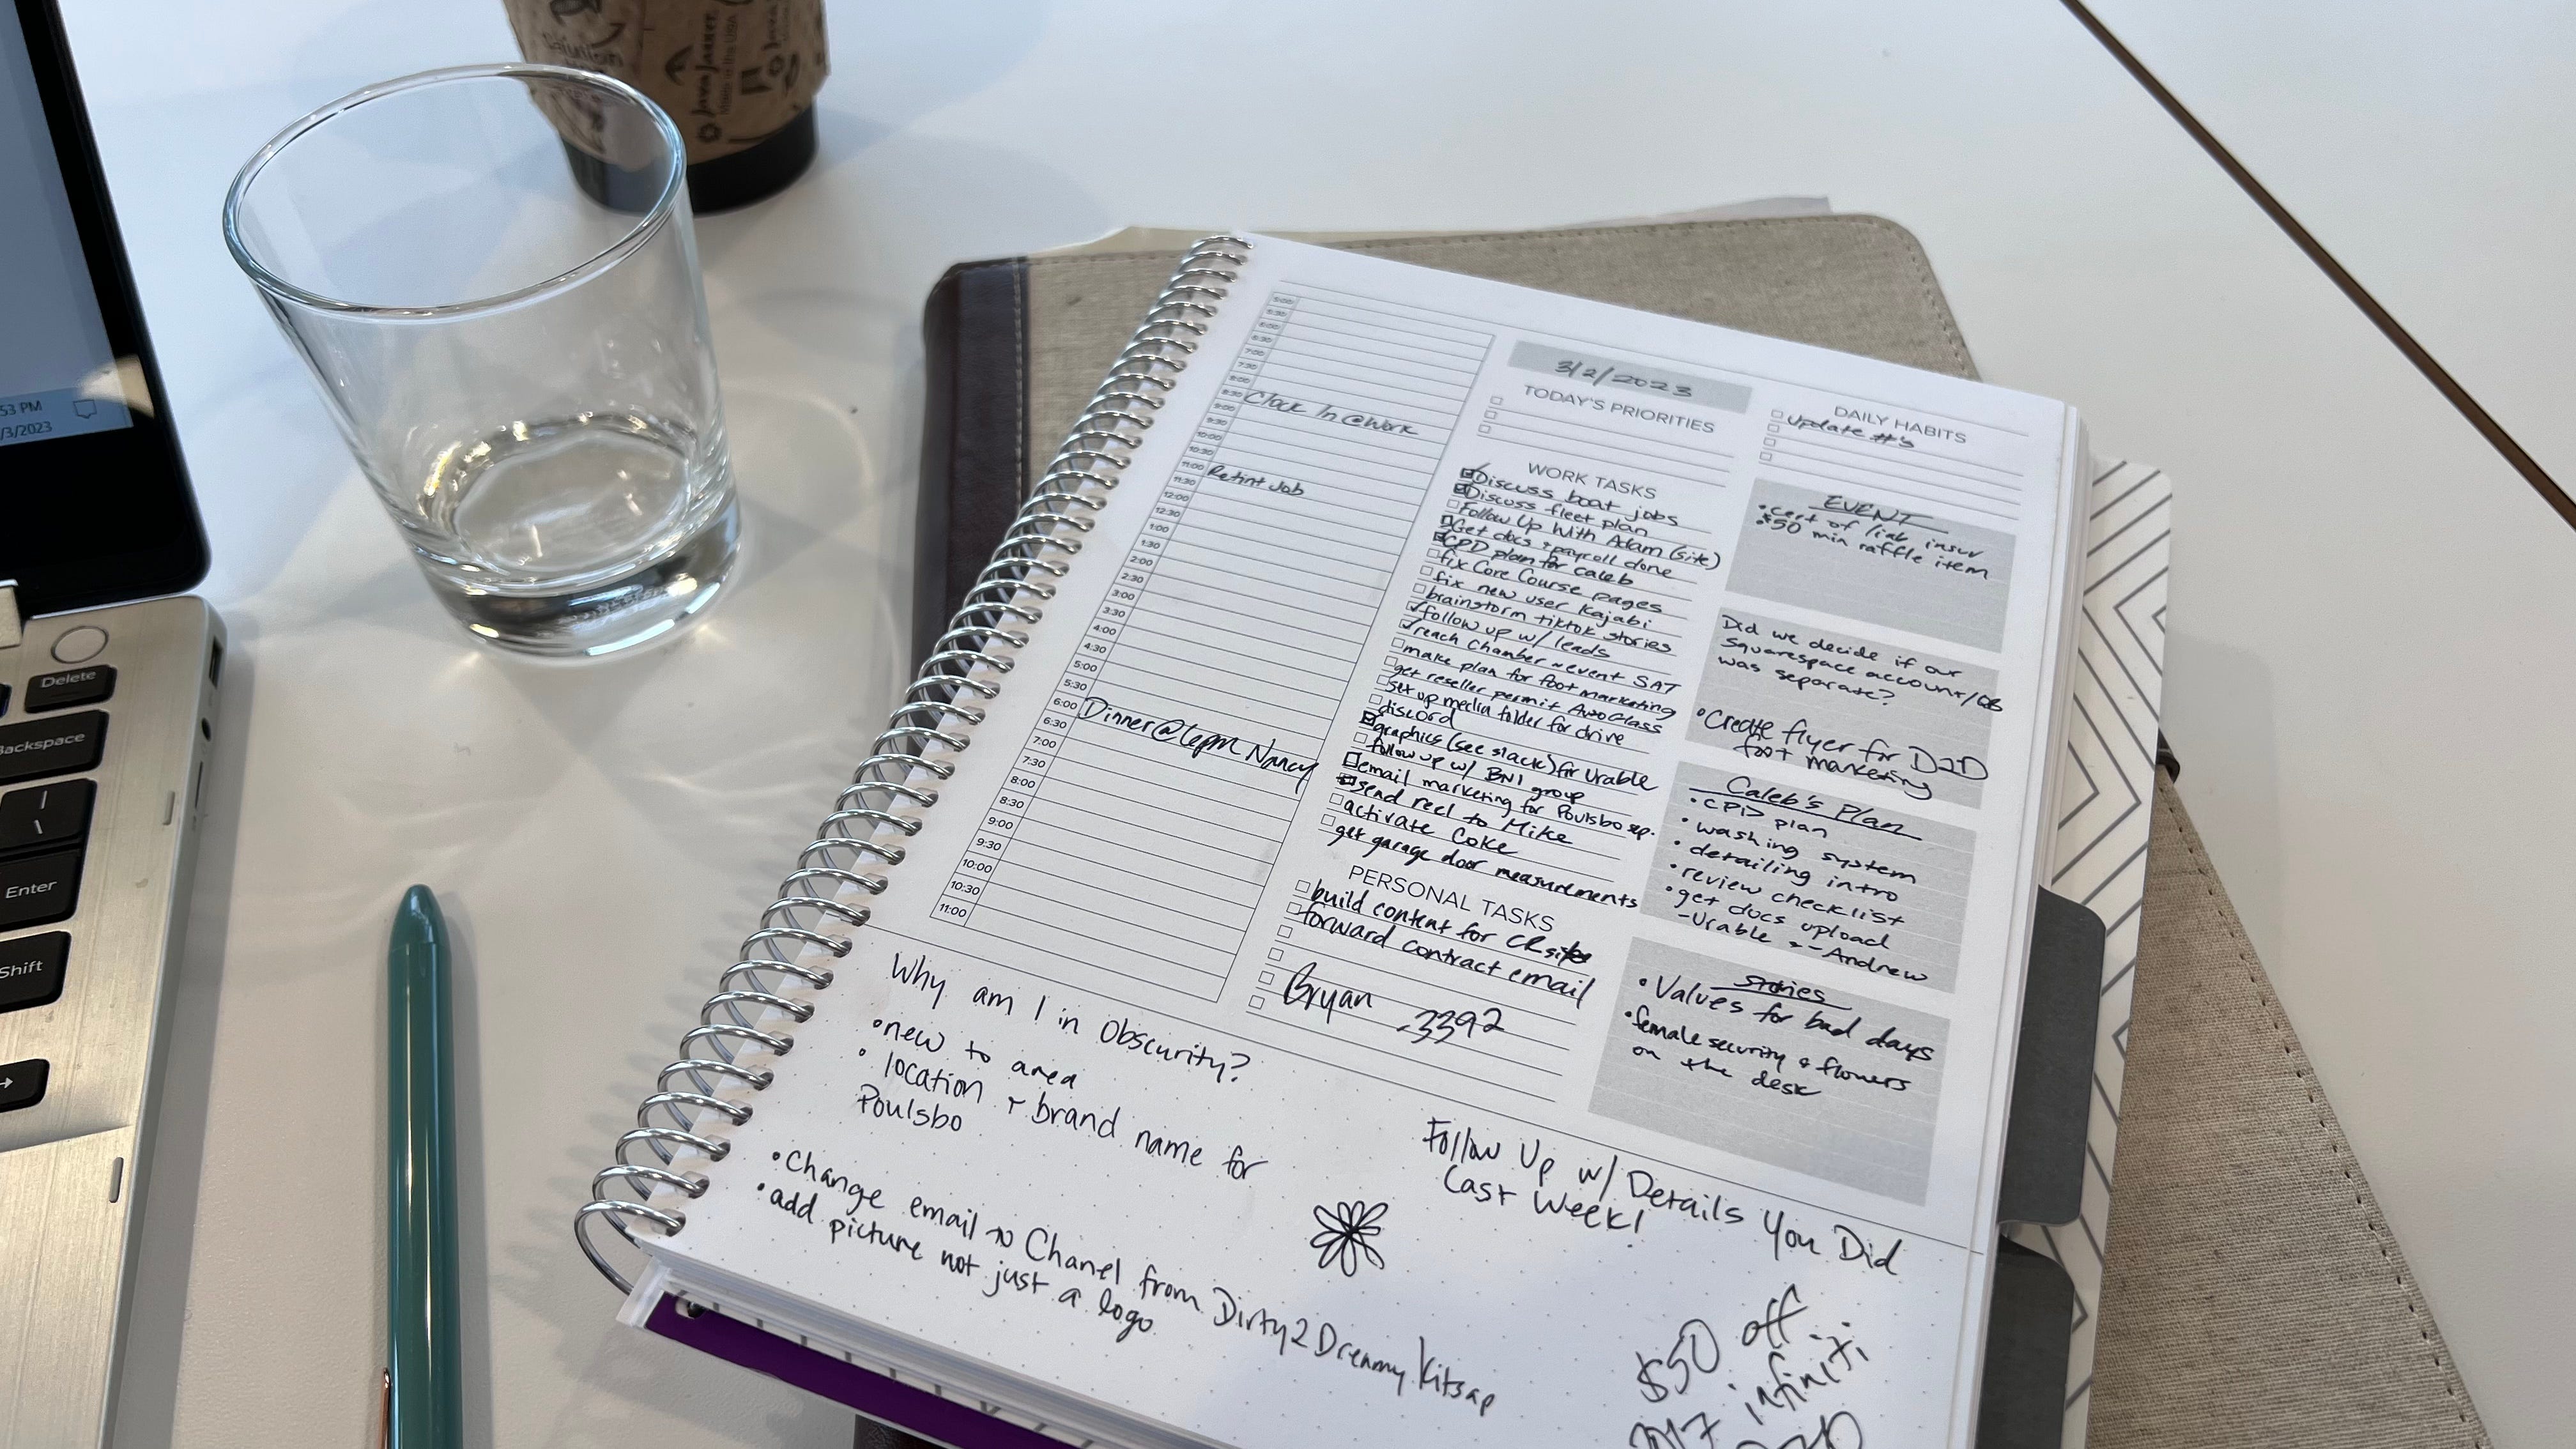 Java Jacket
53 PM
/3/2023
Delete
Backspace
Enter
Shift
5:00
5:30
6:00
6:30
7:00
7:30
8:00
8:30 Clock In @ Work
9:00
9:30
10:00
10:30
11:00 Retint Job
11:30
12:00
12:30
1:00
1:30
2:00
2:30
3:00
3:30
4:00
4:30
5:00
5:30
6:00 Dinner@6pm Nancy
6:30
7:00
7:30
8:00
8:30
9:00
9:30
10:00
10:30
11:00
3/2/2023
TODAY'S PRIORITIES
WORK TASKS
Discuss boat jobs
Discuss fleet plan
Follow Up With Adam (site)
Get docs + payroll done
CPD plan for Caleb
fix Core Course pages
fix new user Kajabi
brainstorm tiktok stories
follow up w/ leads
reach chamber ~ event SAT
make plan for foot marketing
get reseller permit AutoGlass
set up media folder for drive
discord
graphics (see slack) for Urable
follow up w/ BNI group
email marketing for Poulsbo sep.
send reel to Mike
activate Coke
get garage door measurements
PERSONAL TASKS
build content for CR site
forward contract email
Bryan -3392
DAILY HABITS
Update #'s
EVENT
• cert of liab insur
• $50 min raffle item
Did we decide if our
Squarespace account/QB
was separate?
• Create flyer for D2D
foot marketing
Caleb's Plan
• CPD plan
• washing system
• detailing intro
• review checklist
• get docs upload
- Urable + - Andrew
Stories
• Values for bad days
• female security & flowers
on the desk
Why am I in Obscurity?
• new to area
• location + brand name for
Poulsbo
• Change email to Chanel from Dirty2DreamyKitsap
• add picture not just a logo
Follow Up w/ Details You Did
Last Week!
$50 off...
2017 infiniti